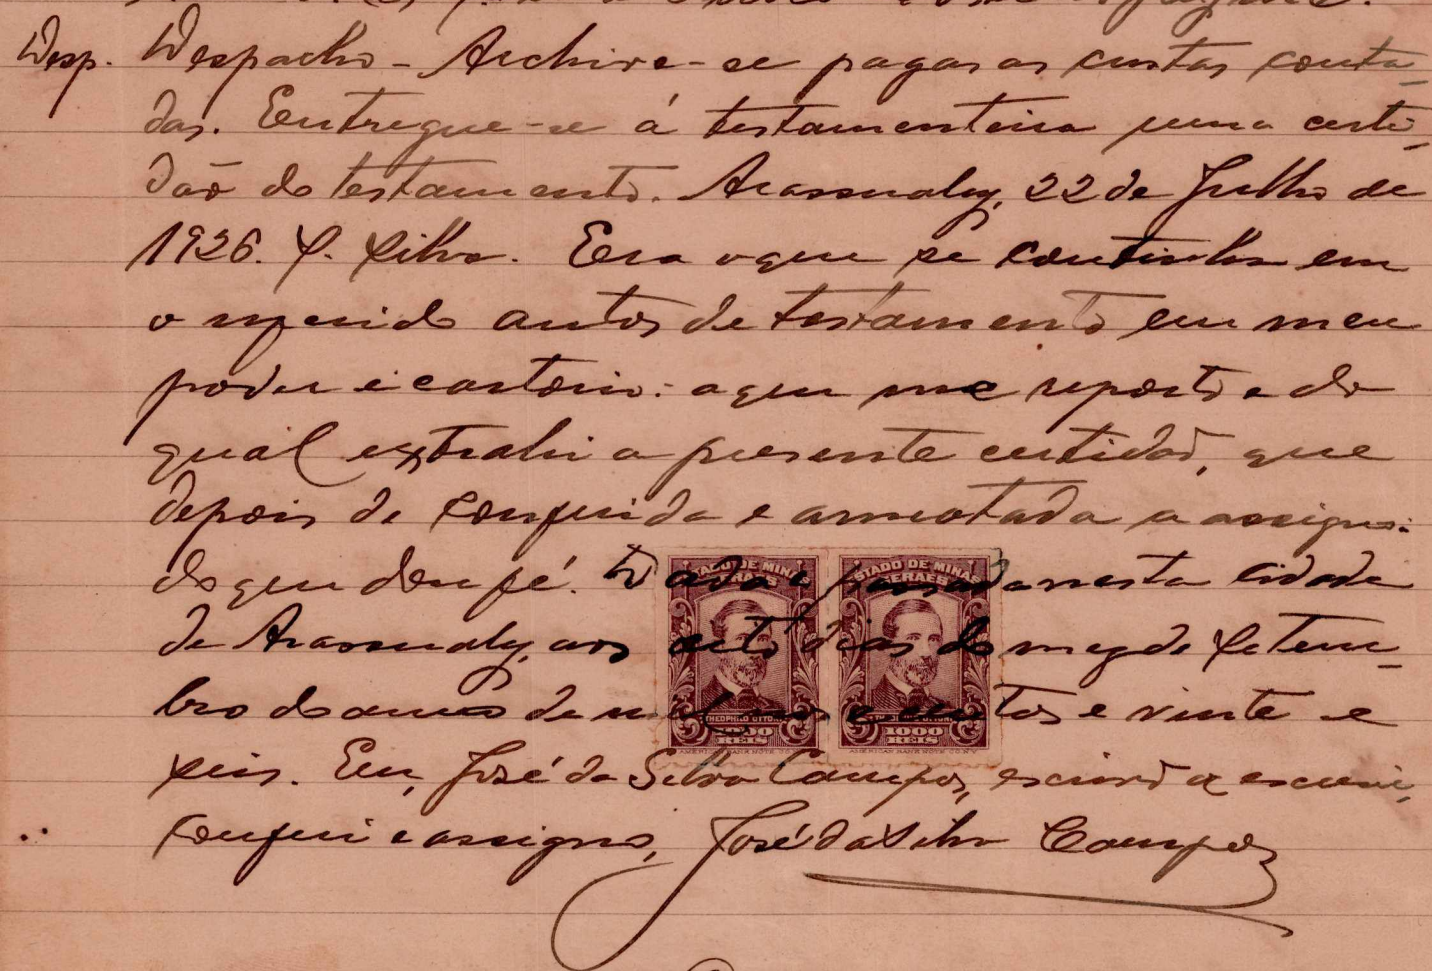 Desp. Despacho - Archive-se pagas as custas conta-
das. Entregue-se á testamenteira uma certi-
dão do testamento. Arassuahy, 22 de Julho de
1926. S. Silva. Era o que se continha em
o referido autos de testamento em meu
poder e cartorio: a que me reporto e do
qual extrahi a presente certidão, que
depois de conferida e annotada a assigno:
do que dou fé. Dada e passada nesta cidade
de Arassuahy, aos oito dias do mez de Setem-
bro do anno de mil novecentos e vinte e
seis. Eu, José da Silva Campos, escrivão a escrevi,
conferi e assigno, José da Silva Campos
ESTADO DE MINAS GERAES
THEOPHILO OTTONI
1000 REIS
AMERICAN BANK NOTE CO. N.Y.
ESTADO DE MINAS GERAES
1000 REIS
AMERICAN BANK NOTE CO. N.Y.